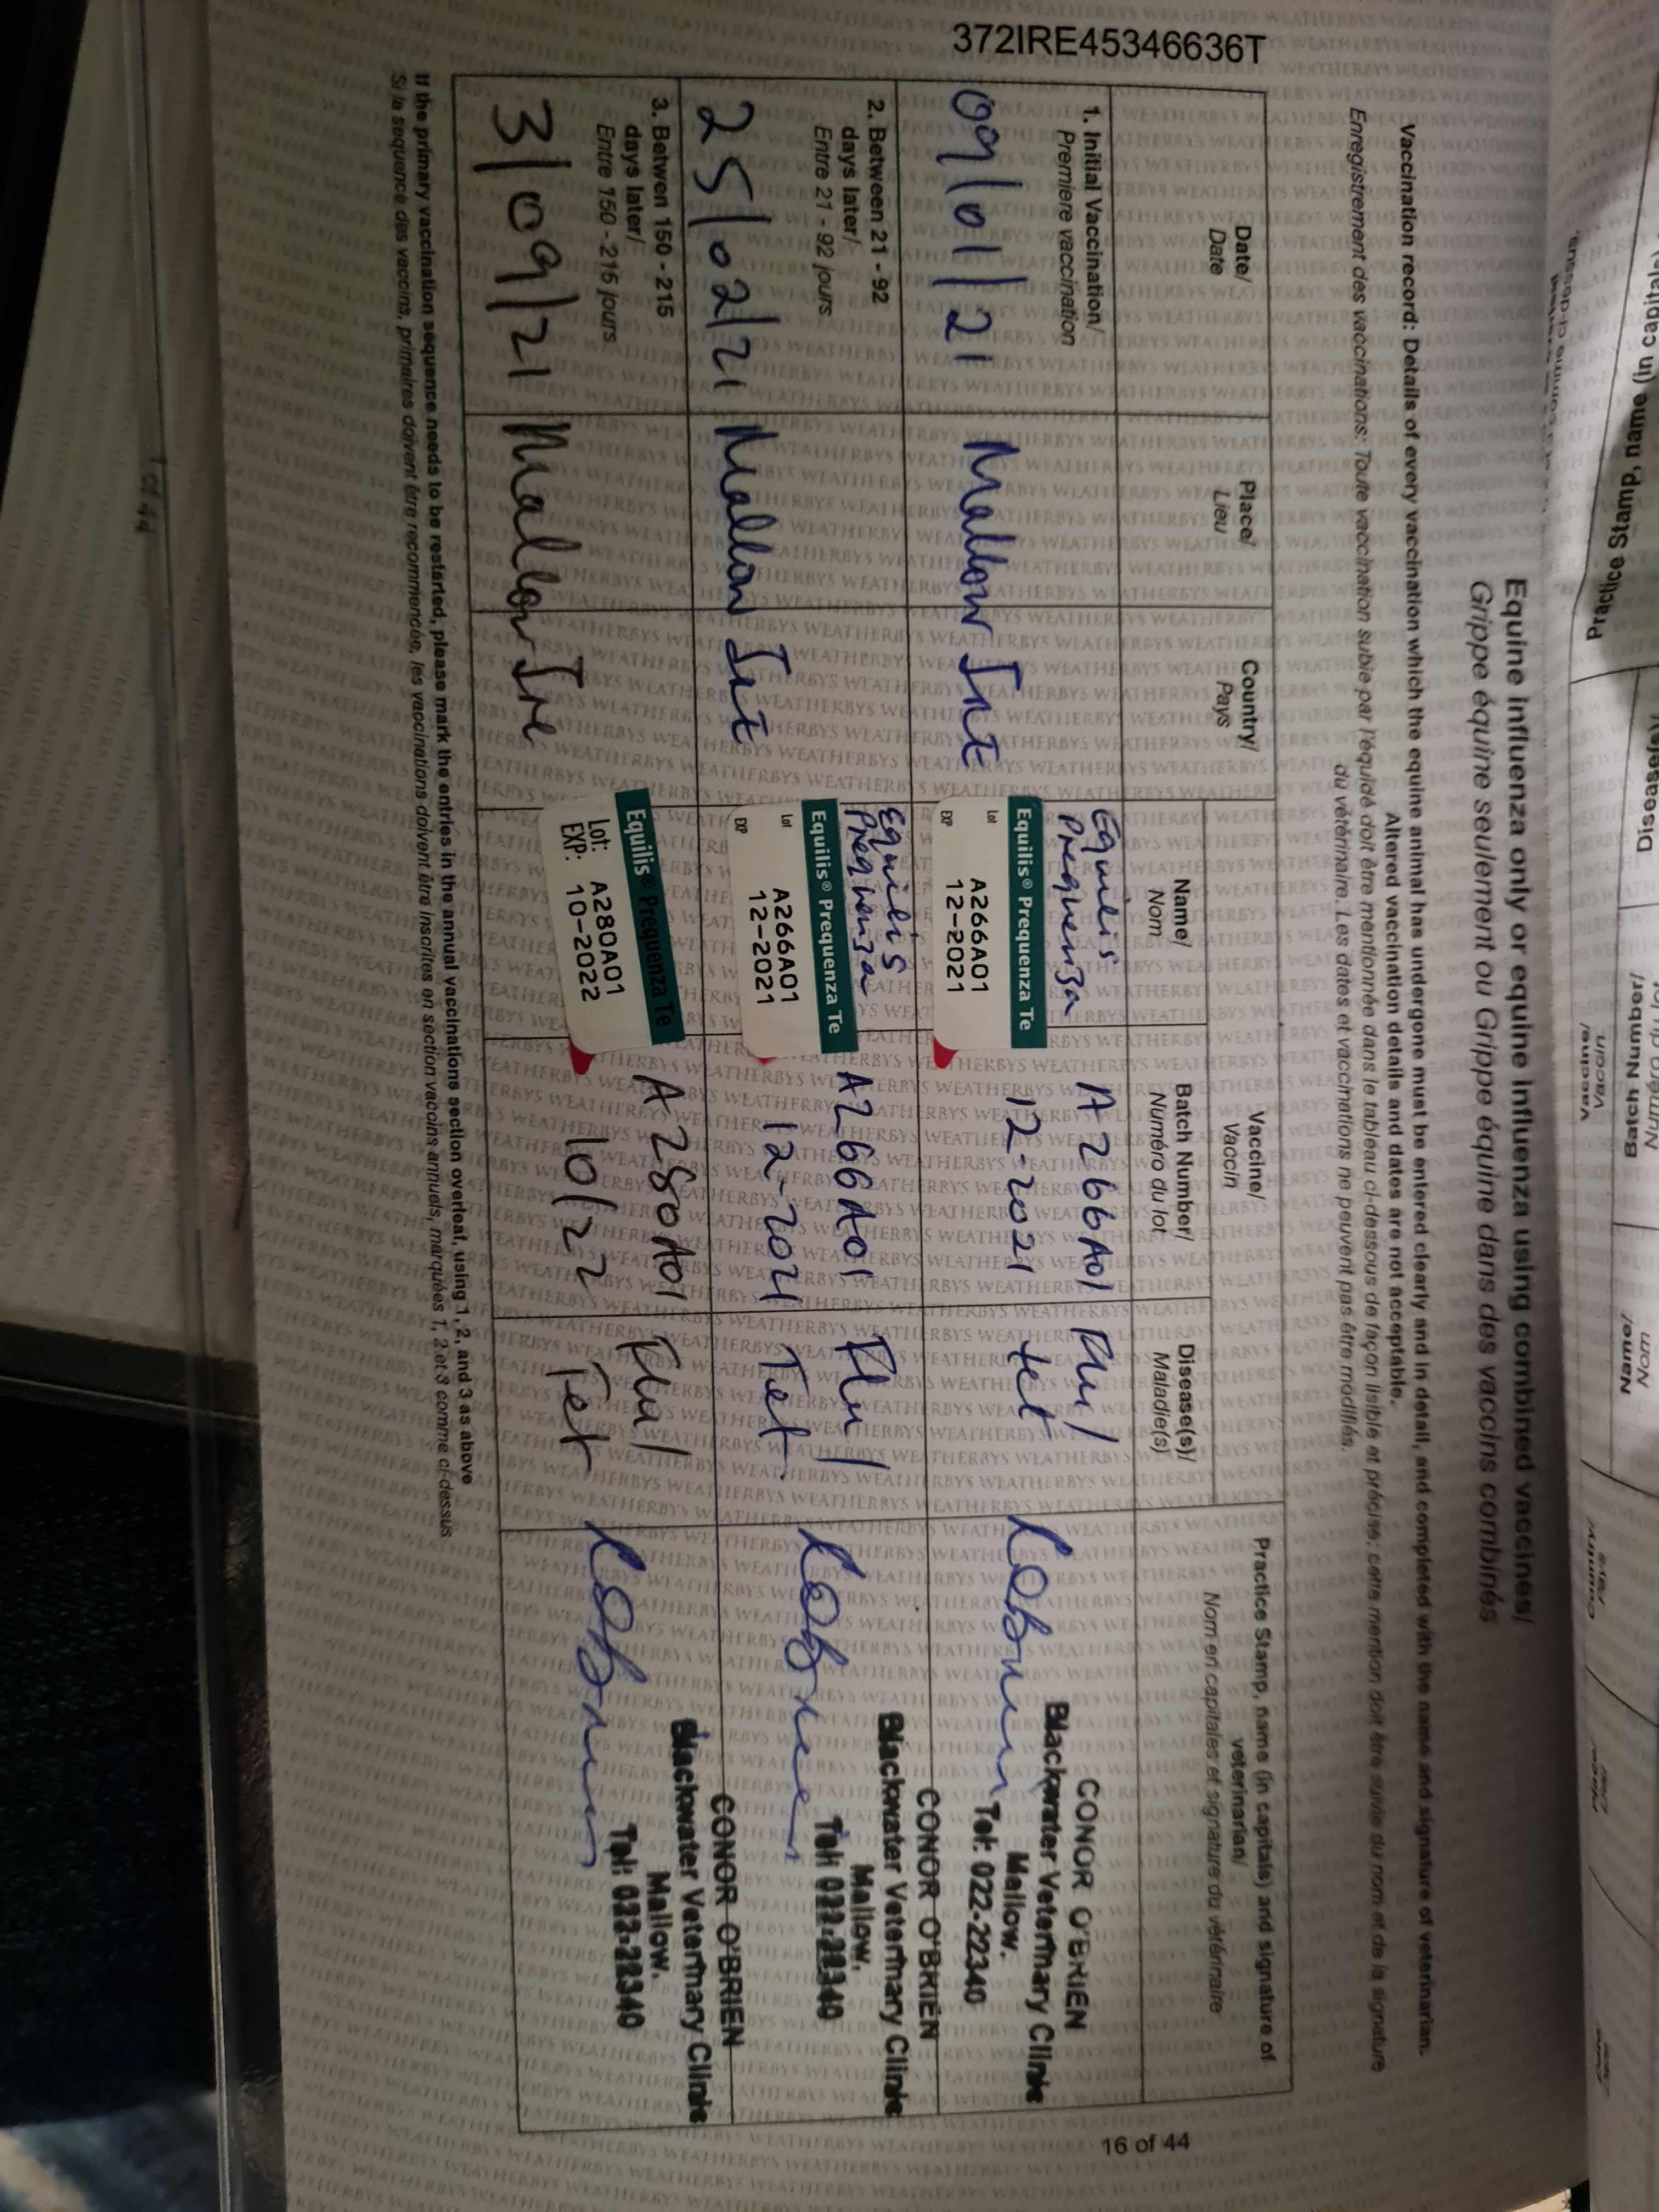 372IRE45346636T
Equine influenza only or equine influenza using combined vaccines/
Grippe équine seulement ou Grippe équine dans des vaccins combinés
Vaccination record: Details of every vaccination which the equine animal has undergone must be entered clearly and in detail, and completed with the name and signature of veterinarian.
Altered vaccination details and dates are not acceptable.
Enregistrement des vaccinations: Toute vaccination subie par l'équidé doit être mentionnée dans le tableau ci-dessous de façon lisible et précise; cette mention doit être suivie du nom et de la signature
du vétérinaire. Les dates et vaccinations ne peuvent pas être modifiés.
Date/
Date
Place/
Lieu
Country/
Pays
Vaccine/
Vaccin
Name/
Nom
Batch Number/
Numéro du lot
Disease(s)/
Maladie(s)
Practice Stamp, name (in capitals) and signature of
veterinarian/
Nom en capitales et signature du vérérinaire
1. Initial Vaccination/
Premiere vaccination
09/01/21
Mallow
Equilis
Prequenza
Equilis® Prequenza Te
Lot A266A01
EXP 12-2021
A266A01
12-2021
Flu/
tet
CONOR O'BRIEN
Blackwater Veterinary Clinic
Mallow.
Tel: 022-22340
2. Between 21 - 92
days later/
Entre 21 - 92 jours
25/02/21
Mallow
Equilis
Prequenza
Equilis® Prequenza Te
Lot A266A01
EXP 12-2021
A266A01
12-2021
Flu/
Tet.
CONOR O'BRIEN
Blackwater Veterinary Clinic
Mallow.
Tel: 022-22340
3. Between 150 - 215
days later/
Entre 150 - 215 jours
3/09/21
Mallow
Ire
Equilis® Prequenza Te
Lot: A280A01
EXP: 10-2022
A280A01
10/22
Flu/
Tet
CONOR O'BRIEN
Blackwater Veterinary Clinic
Mallow.
Tel: 022-22340
If the primary vaccination sequence needs to be restarted, please mark the entries in the annual vaccinations section overleaf, using 1, 2, and 3 as above
Si la sequence des vaccins, primaires doivent être recommencée, les vaccinations doivent être inscrites en section vaccins annuels, marquées 1, 2 et 3 comme ci-dessus
16 of 44
Practice Stamp, name (in capitals)
Disease(s)/
Batch Number/
Numéro du lot
Vaccine/
Vaccin
Name/
Nom
Country/
Pays